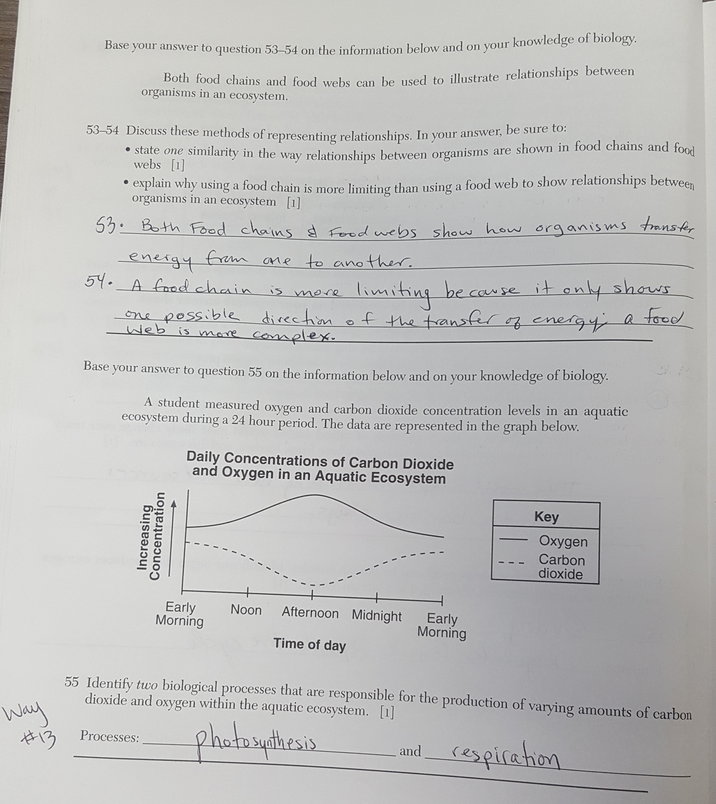 Base your answer to question 53–54 on the information below and on your knowledge of biology.
Both food chains and food webs can be used to illustrate relationships between
organisms in an ecosystem.
53–54 Discuss these methods of representing relationships. In your answer, be sure to:
• state one similarity in the way relationships between organisms are shown in food chains and food
webs [1]
• explain why using a food chain is more limiting than using a food web to show relationships between
organisms in an ecosystem [1]
53. Both Food chains & Food webs show how organisms transfer
energy from one to another.
54. A food chain is more limiting because it only shows
one possible direction of the transfer of energy; a food
web is more complex.
Base your answer to question 55 on the information below and on your knowledge of biology.
A student measured oxygen and carbon dioxide concentration levels in an aquatic
ecosystem during a 24 hour period. The data are represented in the graph below.
Daily Concentrations of Carbon Dioxide
and Oxygen in an Aquatic Ecosystem
Increasing
Concentration
Key
Oxygen
Carbon
dioxide
Early
Morning
Noon
Afternoon
Midnight
Early
Morning
Time of day
55 Identify two biological processes that are responsible for the production of varying amounts of carbon
dioxide and oxygen within the aquatic ecosystem. [1]
Way
#13
Processes: photosynthesis and respiration